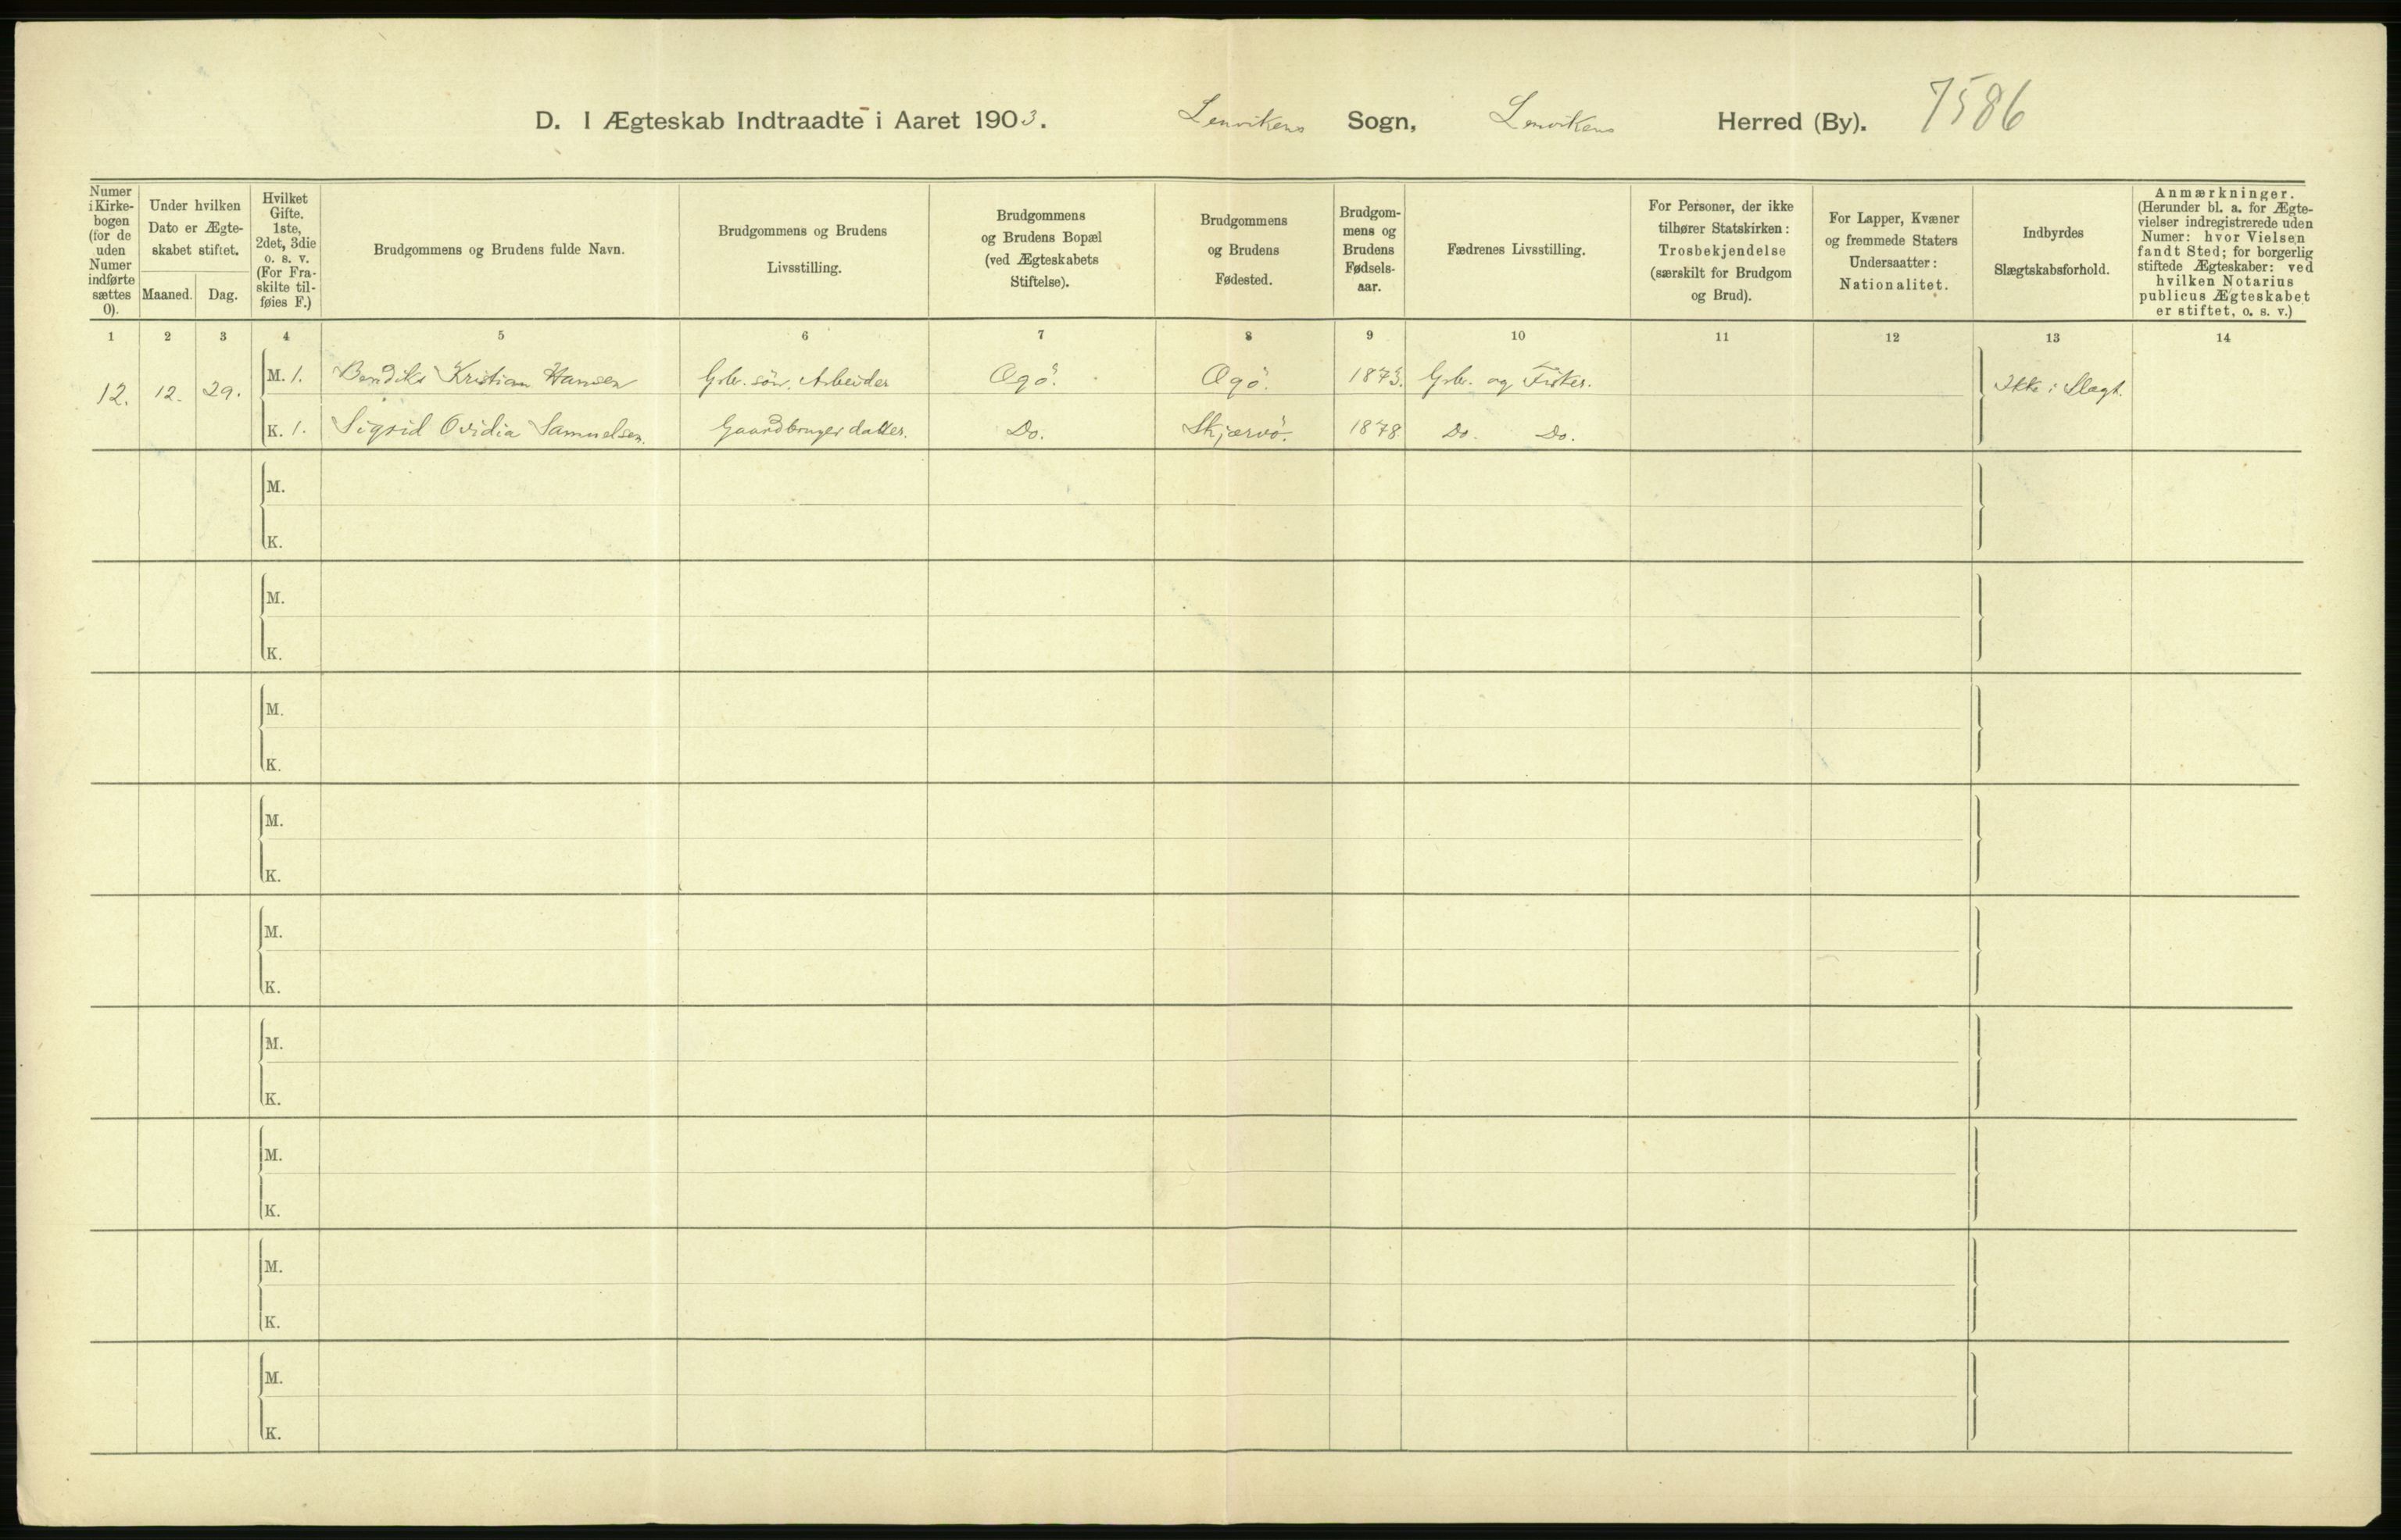 D. I Ægteskab Indtraadte i Aaret 1903. Lenvikens Sogn, Lenvikens Herred (By). 7586
Numer i Kirkebogen (for de uden Numer indførte sættes 0).
Under hvilken Dato er Ægteskabet stiftet.
Maaned. Dag.
Hvilket Gifte. 1ste, 2det, 3die o. s. v. (For Fraskilte tilføies F.)
Brudgommens og Brudens fulde Navn.
Brudgommens og Brudens Livsstilling.
Brudgommens og Brudens Bopæl (ved Ægteskabets Stiftelse).
Brudgommens og Brudens Fødested.
Brudgommens og Brudens Fødselsaar.
Fædrenes Livsstilling.
For Personer, der ikke tilhører Statskirken: Trosbekjendelse (særskilt for Brudgom og Brud).
For Lapper, Kvæner og fremmede Staters Undersaatter: Nationalitet.
Indbyrdes Slægtskabsforhold.
Anmærkninger. (Herunder bl. a. for Ægtevielser indregistrerede uden Numer: hvor Vielsen fandt Sted; for borgerlig stiftede Ægteskaber: ved hvilken Notarius publicus Ægteskabet er stiftet, o. s. v.)
1 2 3 4 5 6 7 8 9 10 11 12 13 14
12. 12. 29. M. 1. Bendiks Kristian Hansen Grbr. sön, Arbeider Ogö. Ogö. 1873. Grbr. og Fisker. Ikke i Slægt.
K. 1. Sigrid Ovidia Samuelsen. Gaardbruger datter. Do. Skjærvö. 1878 Do. Do.
M.
K.
M.
K.
M.
K.
M.
K.
M.
K.
M.
K.
M.
K.
M.
K.
M.
K.